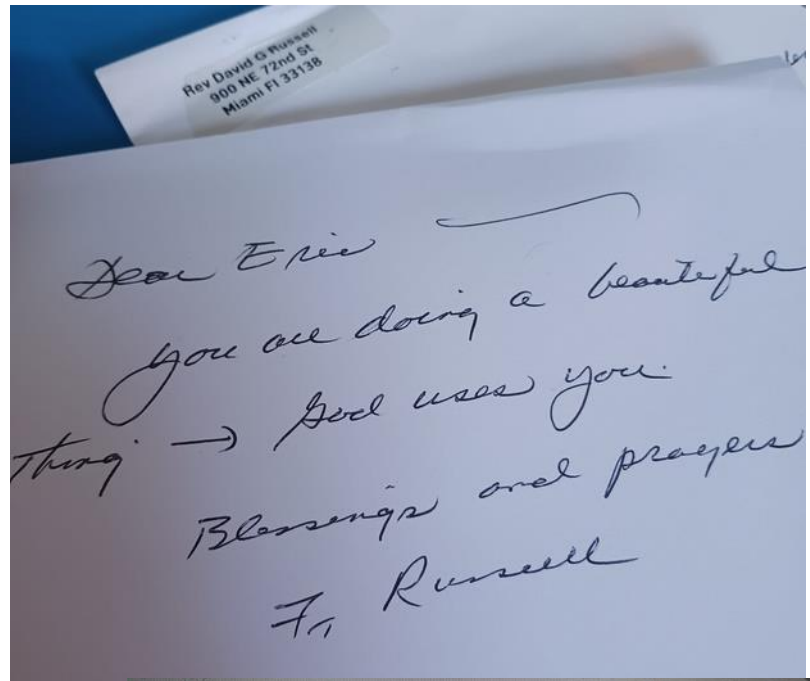 Rev David G Russell
900 NE 72nd St
Miami Fl 33138
Dear Eric
you are doing a beautiful
thing → God uses you.
Blessings and prayers
Fr Russell